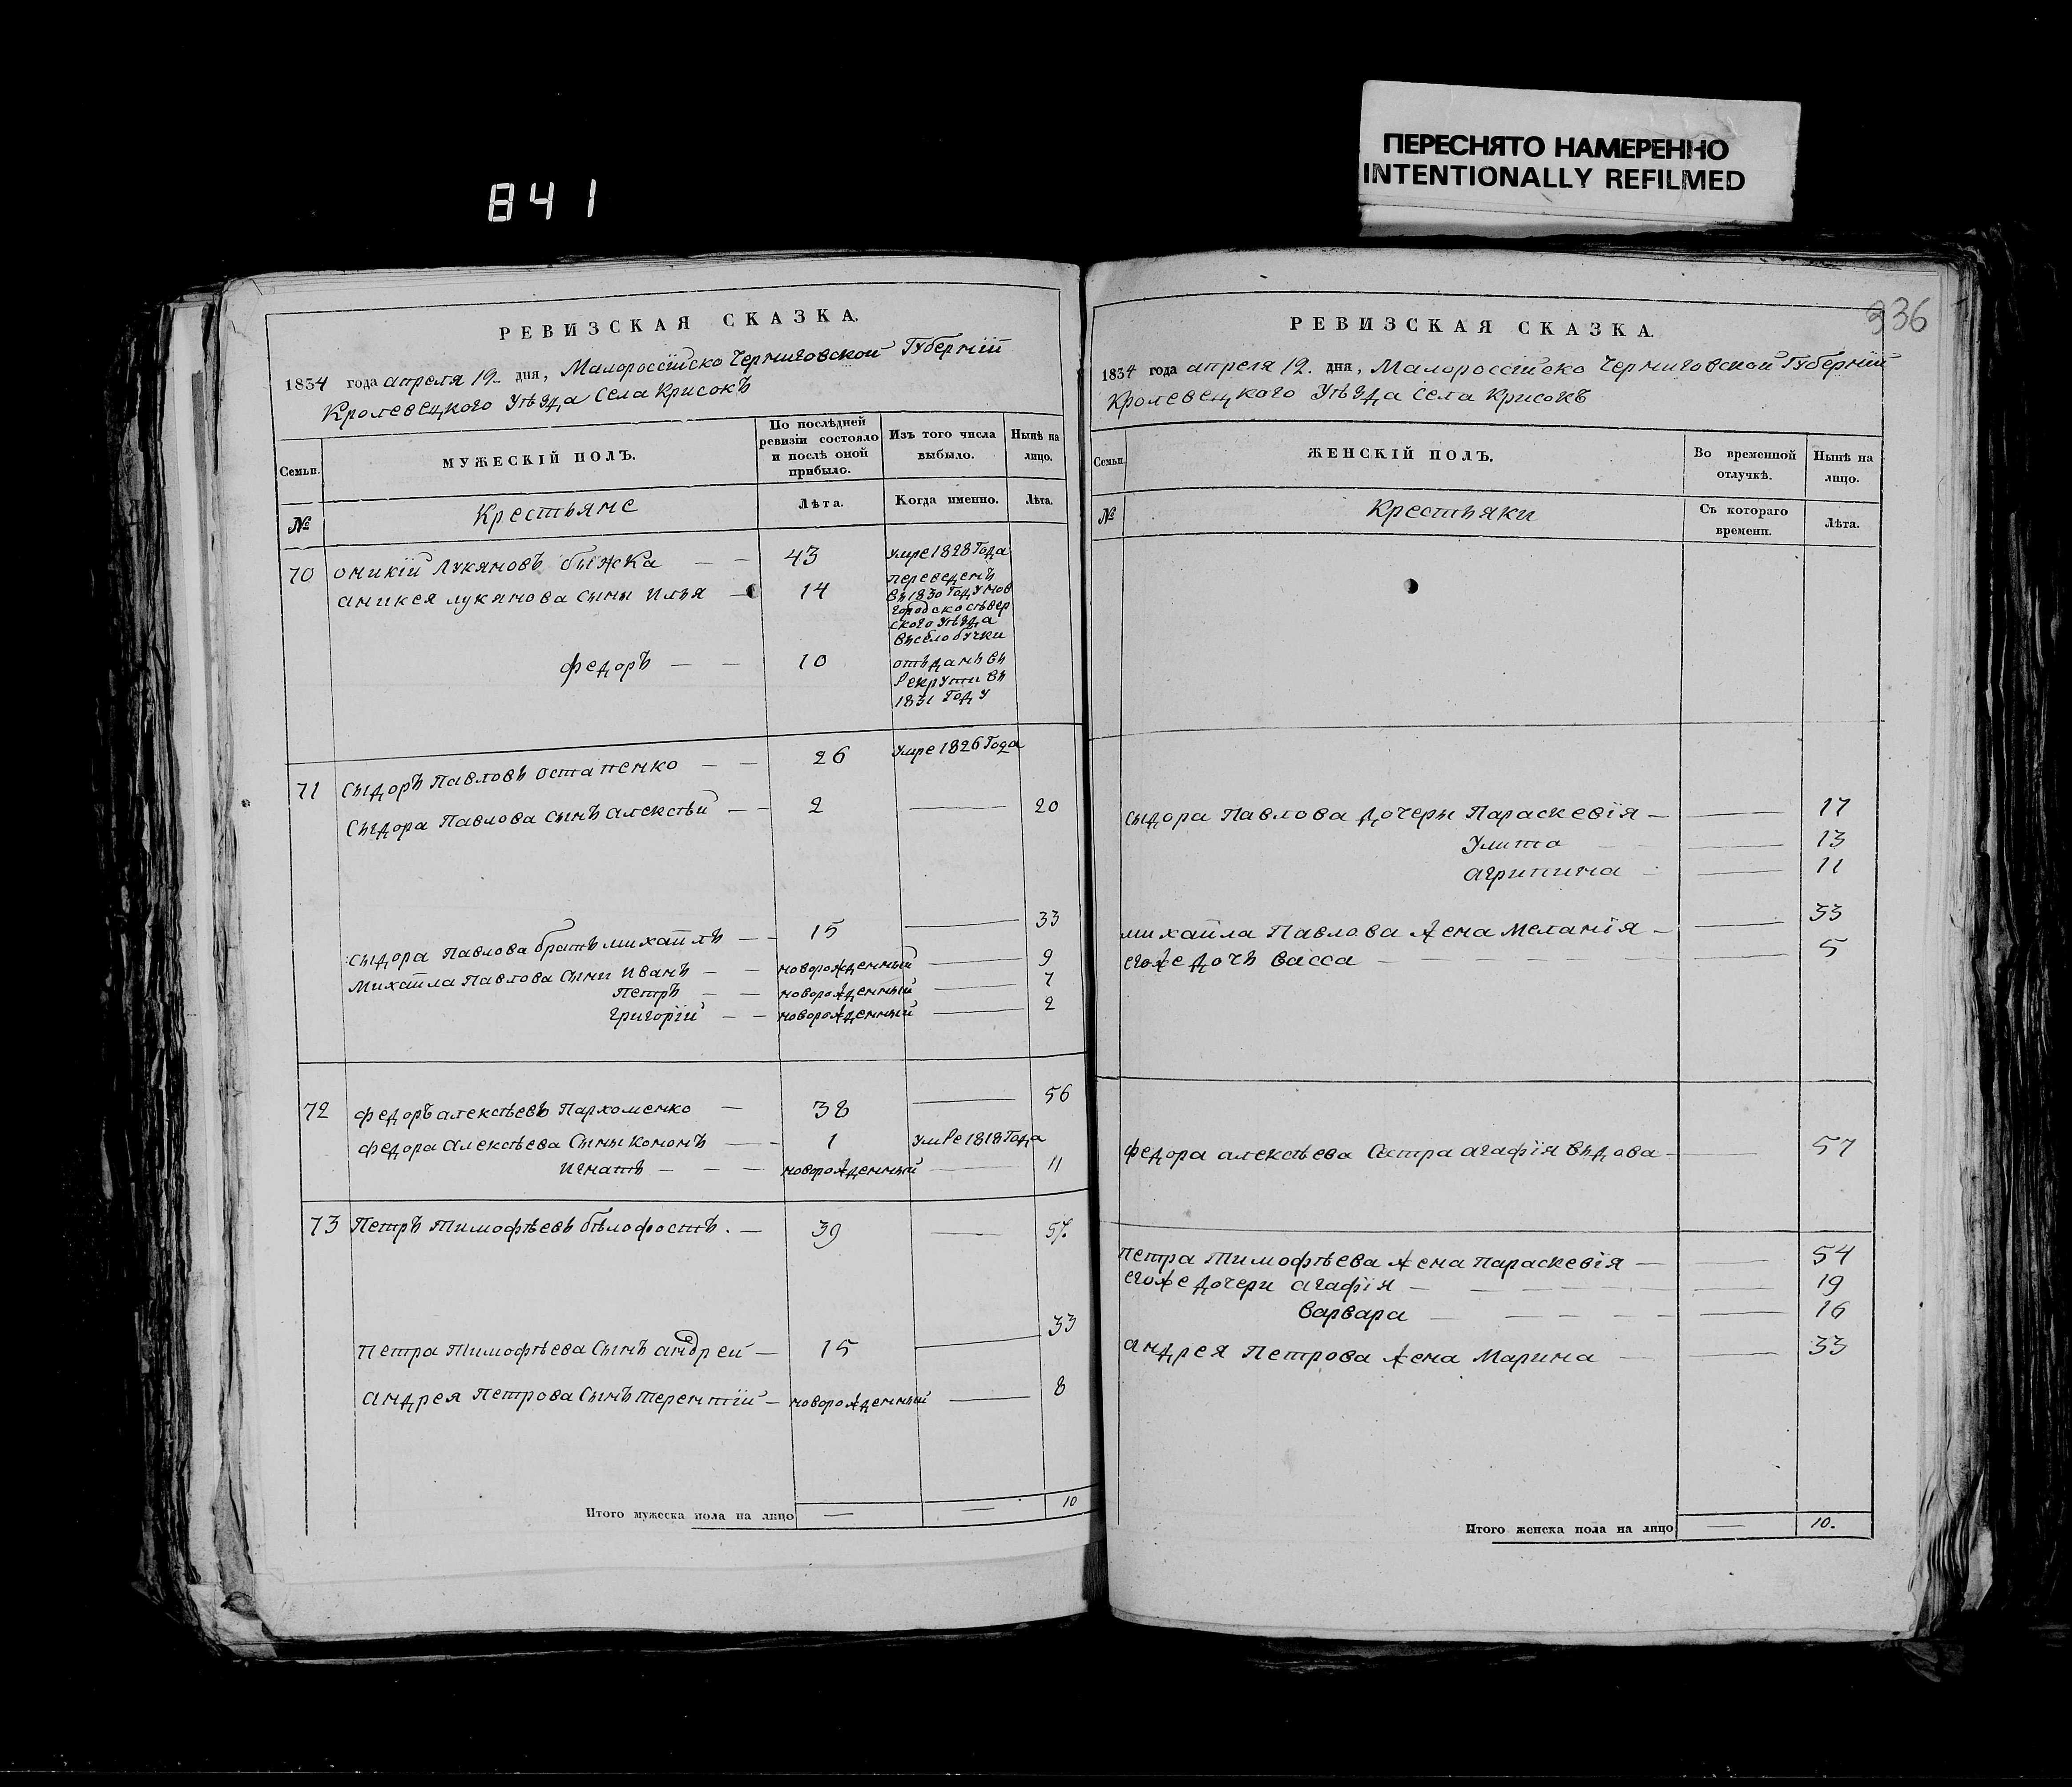 841
ПЕРЕСНЯТО НАМЕРЕННО
INTENTIONALLY REFILMED
РЕВИЗСКАЯ СКАЗКА.
1834 года апреля 19. дня, Малороссійско Черниговской Губерніи
Кролевецкого Уѣзда Села Крисокъ
Семьи.
МУЖЕСКІЙ ПОЛЪ.
По послѣдней ревизіи состояло и послѣ оной прибыло.
Изъ того числа выбыло.
Нынѣ на лицо.
№
Крестьяне
Лѣта.
Когда именно.
Лѣта.
70 Оникій Лукяновъ Быжка — — 43 умре 1828 Года
Аникея Лукянова сыны Илья — 14 переведенъ
въ 1830 Году Нов
городскосѣвер
ского уѣзда
въ село бучки
Федоръ — — 10 отъданъ въ
рекруты въ
1831 Году
71 Сыдоръ Павловъ Остапенко — — 26 умре 1826 Года
Сыдора Павлова сынъ Алексѣй — — 2 — 20
Сыдора Павлова братъ Михайлъ — — 15 — 33
Михайла Павлова сыны Иванъ — — новорожденный — 9
Петръ — — новорожденный — 7
Григорій — — новорожденный — 2
72 Федоръ Алексѣевъ Пархоменко — 38 — 56
Федора Алексѣева сыны Кононъ — — 1 умре 1818 Года
Игнатъ — — — новорожденный — 11
73 Петръ Тимофѣевъ Бѣлофостъ. — 39 — 57.
Петра Тимофѣева сынъ Андрей — 15 — 33
Андрея Петрова сынъ Терентій — новорожденный — 8
Итого мужеска пола на лицо — — 10
336
РЕВИЗСКАЯ СКАЗКА.
1834 года апреля 19. дня, Малороссійско Черниговской Губерніи
Кролевецкого Уѣзда Села Крисокъ
Семьи.
ЖЕНСКІЙ ПОЛЪ.
Во временной отлучкѣ.
Нынѣ на лицо.
№
Крестьянки
Съ котораго времени.
Лѣта.
Сыдора Павлова дочеры Параскевія — — 17
Улита — 13
Агрипина — 11
Михайла Павлова жена Меланія — — 33
егоже дочъ Васса — — 5
Федора Алексѣева сестра Агафія въдова — — 57
Петра Тимофѣева жена Параскевія — — 54
егоже дочери Агафія — — 19
Варвара — — 16
Андрея Петрова жена Марина — — 33
Итого женска пола на лицо — 10.